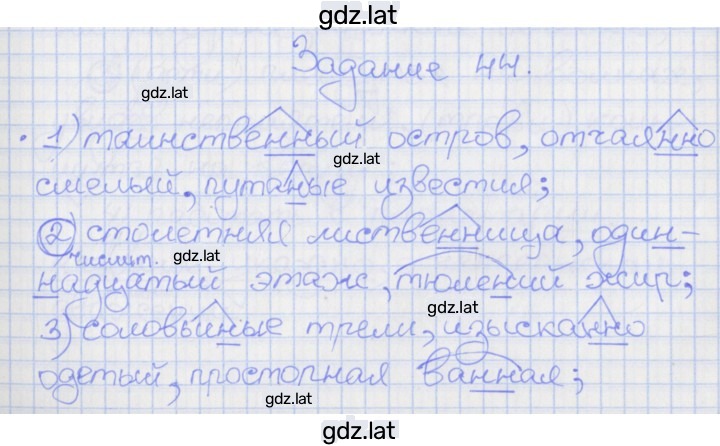 gdz.lat
Задание 44.
gdz.lat
1) таинственный остров, отчаянно
gdz.lat
смелый, путаные известия;
2) столетняя лиственница, один-
числит. gdz.lat
надцатый этаж, тюлений жир;
gdz.lat
3) соловьиные трели, изысканно
gdz.lat
одетый, просторная ванная;
gdz.lat
gdz.lat